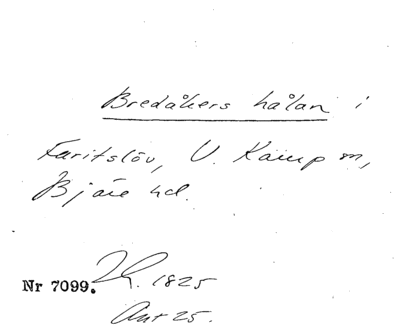 Bredåkers hålan i
Faritslöv, V. Karup sn,
Bjäre hd.
Nr 7099. 1825
Ant 25.